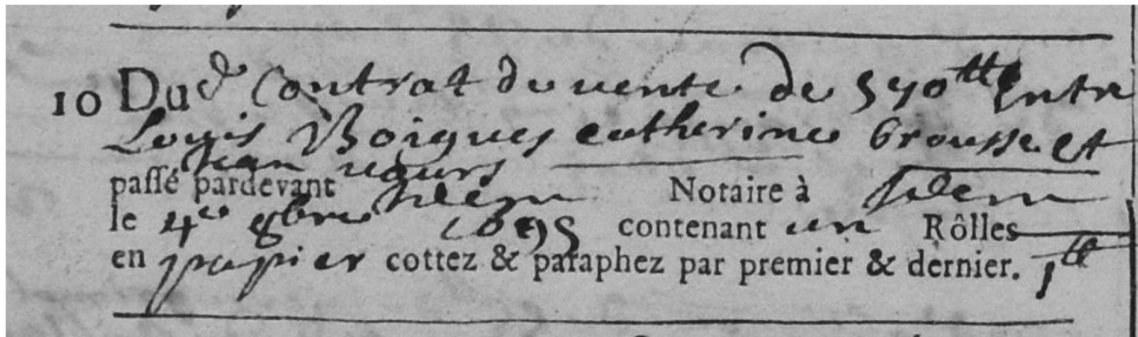 10 Dud Contrat de vente de 590tt Entre
Loyis Boigues catherine brousse et
Jean
passé pardevant Notaire à
le 4e 8bre 1695 contenant un Rôlles
en papier cottez & paraphez par premier & dernier. 1tt